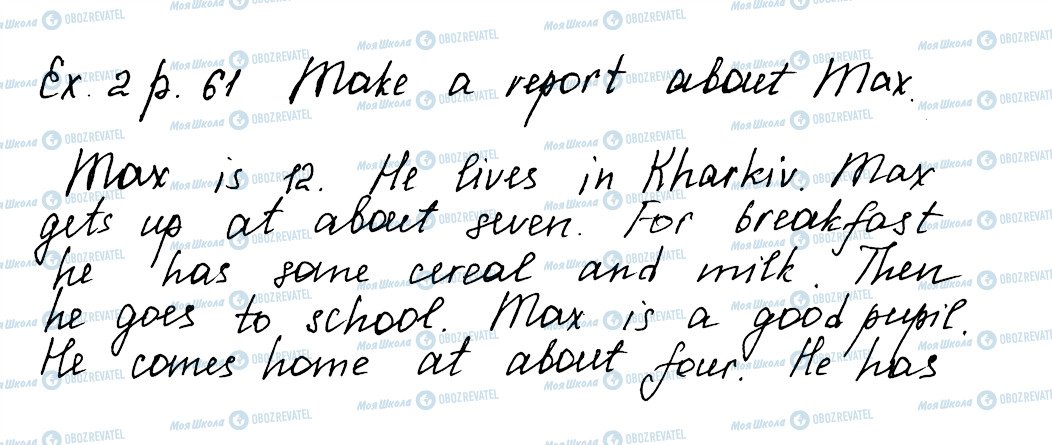 Ex. 2 p. 61 Make a report about Max.
Max is 12. He lives in Kharkiv. Max
gets up at about seven. For breakfast
he has some cereal and milk. Then
he goes to school. Max is a good pupil.
He comes home at about four. He has
МояШкола OBOZREVATEL